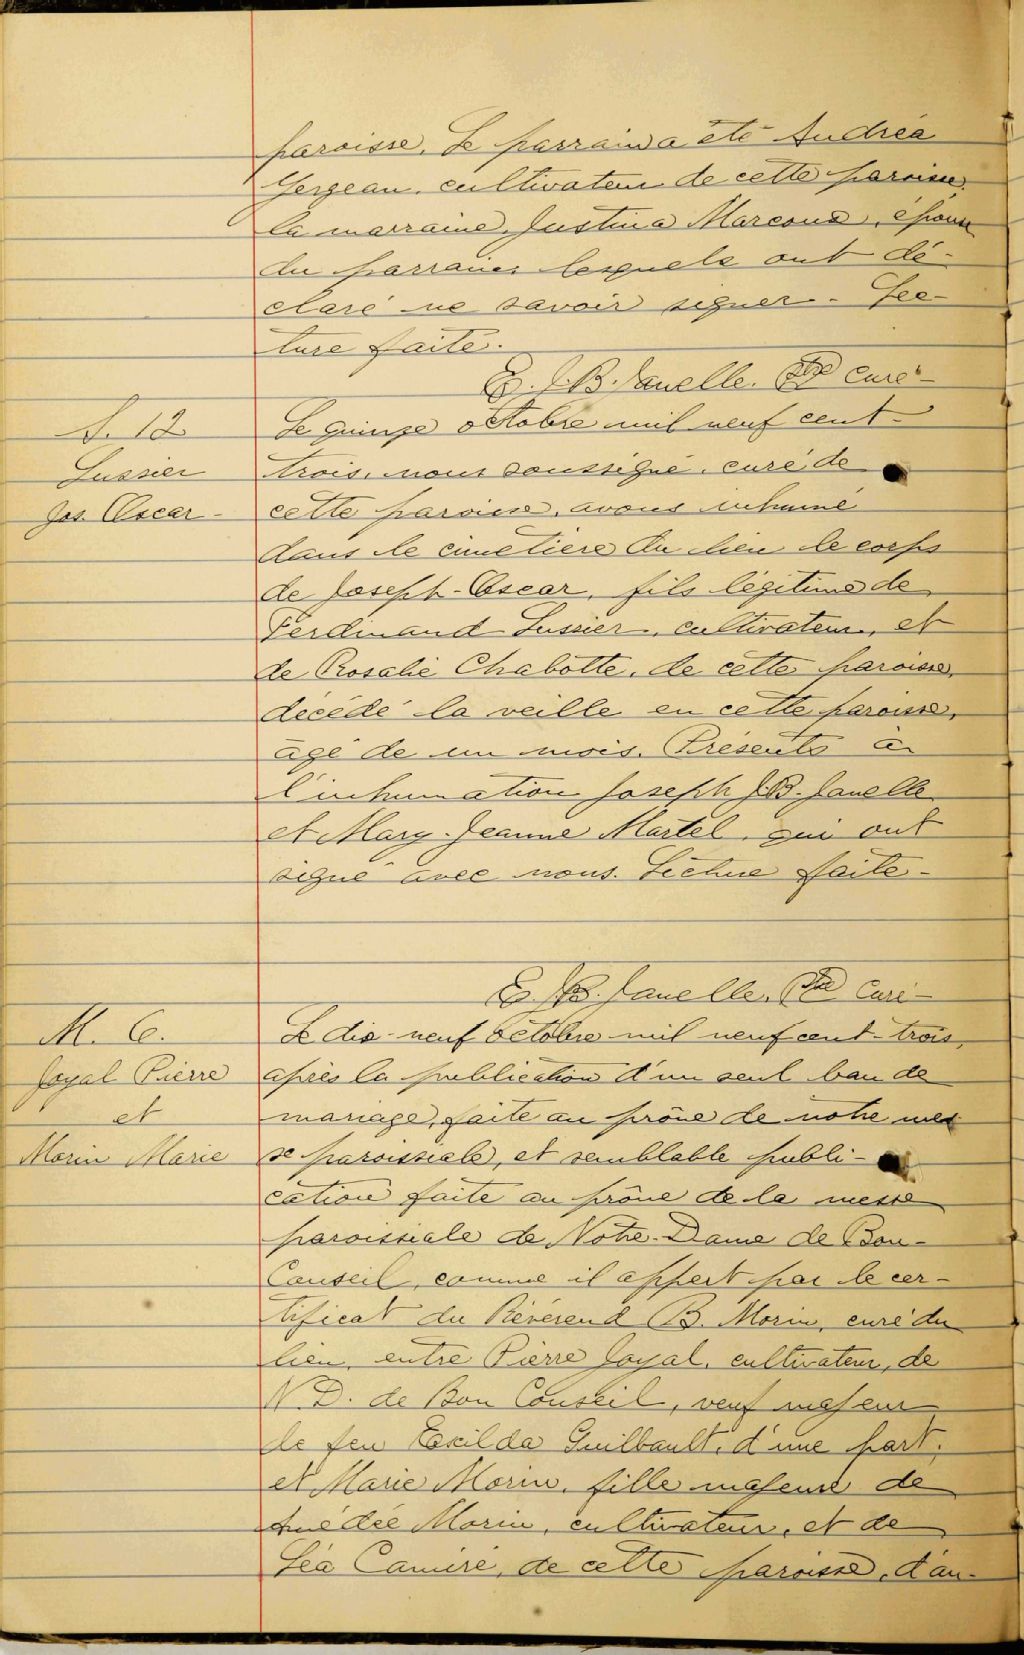 paroisse. Le parrain a été Andréa
Gergeau, cultivateur de cette paroisse,
la marraine, Justina Marcoux, épouse
du parrain lesquels ont dé-
claré ne savoir signer. Lec-
ture faite.
E. J. B. Janelle. Ptre Curé-
S. 12
Lussier
Jos. Oscar-
Le quinze octobre mil neuf cent-
trois, nous soussigné, curé de
cette paroisse, avons inhumé
dans le cimetière du lieu le corps
de Joseph-Oscar, fils légitime de
Ferdinand Lussier, cultivateur, et
de Rosalie Chabotte, de cette paroisse,
décédé la veille en cette paroisse,
âgé de un mois. Présents à
l'inhumation Joseph J.B. Janelle
et Mary-Jeanne Martel, qui ont
signé avec nous. Lecture faite-
E. J.B. Janelle. Ptre Curé-
M. 6.
Joyal Pierre
et
Morin Marie
Le dix-neuf octobre mil neuf cent-trois,
après la publication d'un seul ban de
mariage, faite au prône de notre mes
se paroissiale, et semblable publi-
cation faite au prône de la messe
paroissiale de Notre-Dame de Bon-
Conseil, comme il appert par le cer-
tificat du Révérend B. Morin, curé du
lieu, entre Pierre Joyal, cultivateur, de
N.D. de Bon Conseil, veuf majeur
de feu Exilda Guilbault, d'une part;
et Marie Morin, fille majeure de
Amédée Morin, cultivateur, et de
Léa Camiré, de cette paroisse, d'au-